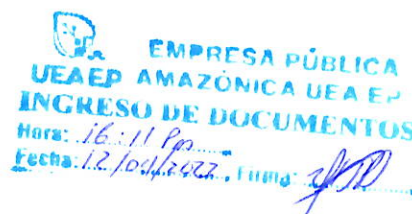 EMPRESA PÚBLICA
UEAEP AMAZÓNICA UEA EP
INGRESO DE DOCUMENTOS
Hora: 16:11 Pm
Fecha: 12/04/2022, Firma: